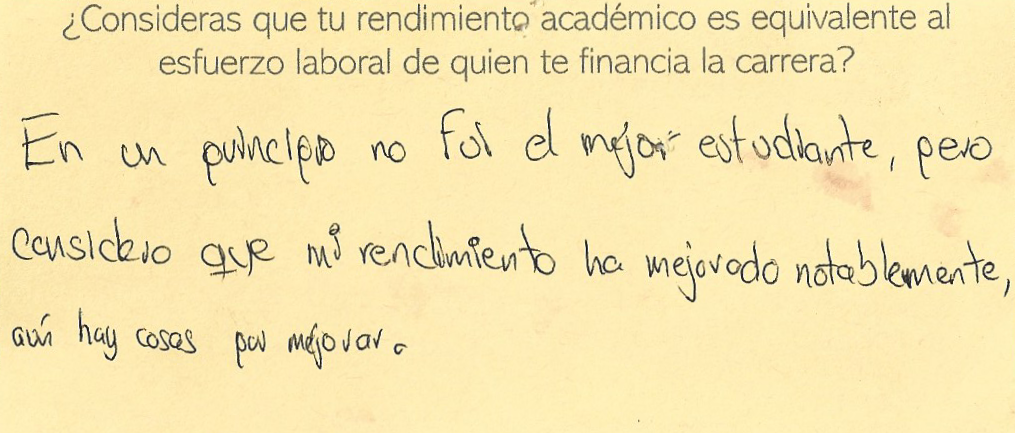 ¿Consideras que tu rendimiento académico es equivalente al
esfuerzo laboral de quien te financia la carrera?
En un principio no fui el mejor estudiante, pero
considero que mi rendimiento ha mejorado notablemente,
aún hay cosas por mejorar.